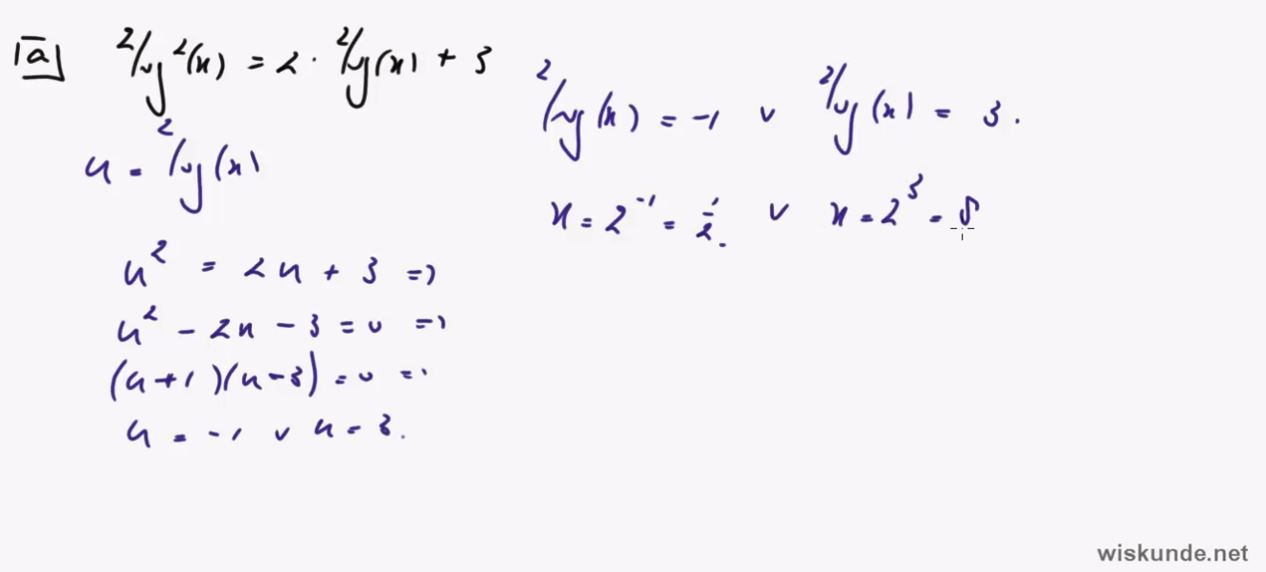 1a] ²log²(x) = 2 · ²log(x) + 3
u = ²log(x)
u² = 2u + 3 =>
u² - 2u - 3 = 0 =>
(u + 1)(u - 3) = 0 =>
u = -1 ∨ u = 3.
²log(x) = -1 ∨ ²log(x) = 3.
x = 2⁻¹ = 1/2. ∨ x = 2³ = 8
wiskunde.net